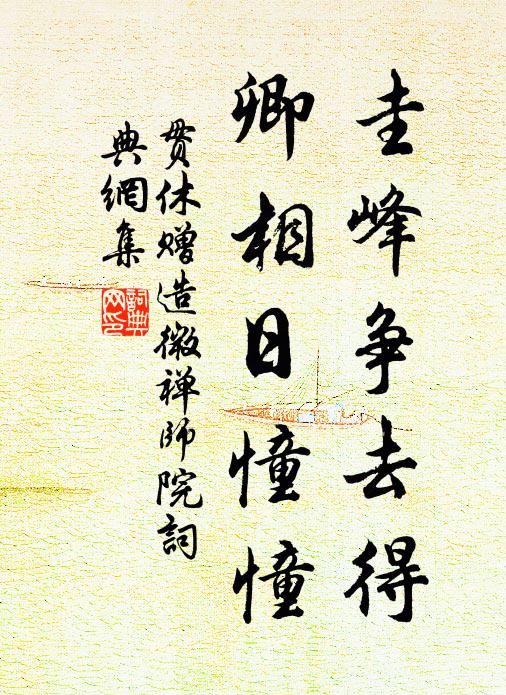 圭峰争去得
卿相日憧憧
贯休赠造微禅师院词
典網集
詞典網印